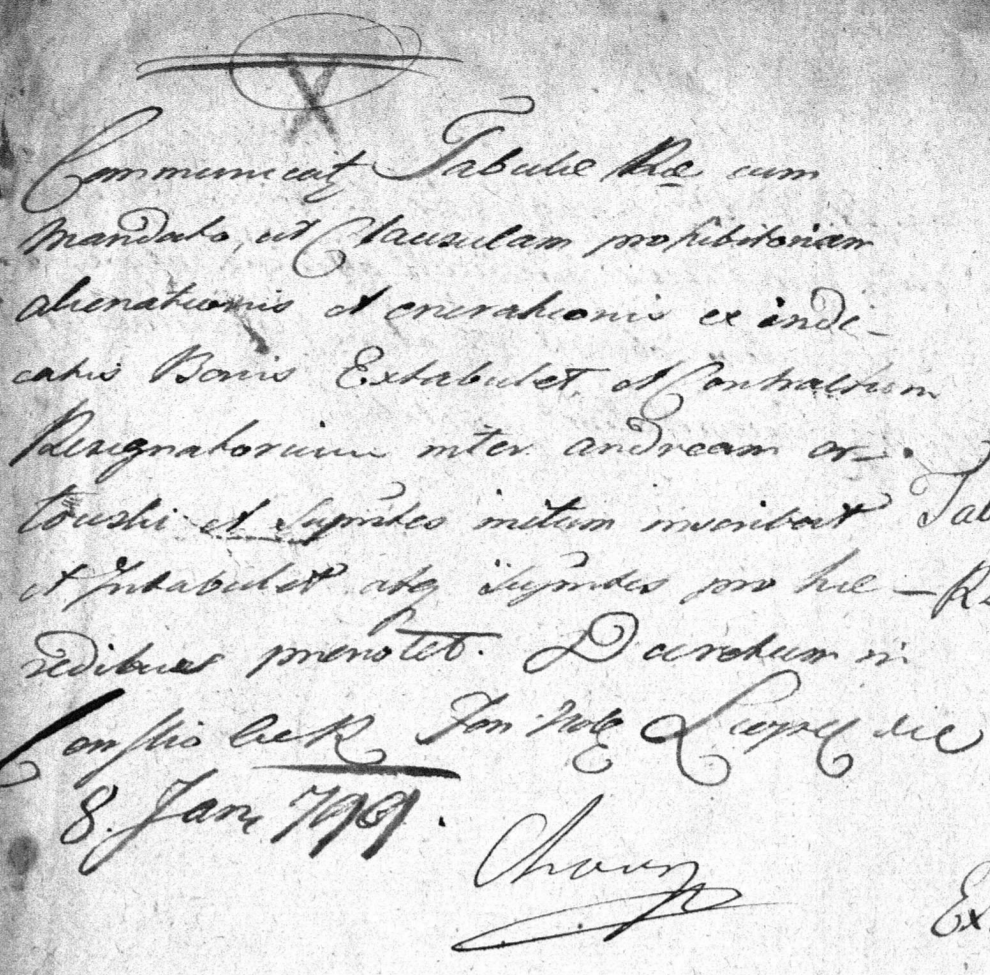 X
Communicatz Tabulæ Ræ cum
Mandato, ut Clausulam prohibitoriam
alienationis et onerationis ex indi-
catis Bonis Extabulet, et Contractum
Resignatorium inter andream or-
touski et initum inscribat
et Intabulet atq pro hæ-
redibus prenotet. Decretum in
Consilio Fori Nob Leopol die
8. Jan 799.
Tab
Ex